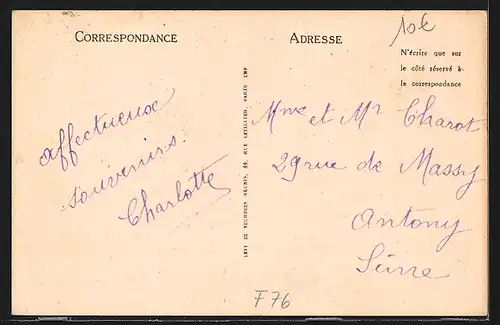 CORRESPONDANCE
ADRESSE
10€
N'écrire que sur
le côté réservé à
la correspondance
affectueux
souvenirs.
Charlotte
LÉVY ET NEURDEIN RÉUNIS, 44, RUE LETELLIER, PARIS IMP
Mme et Mr Charot
29 rue de Massy
Antony
Seine
F 76